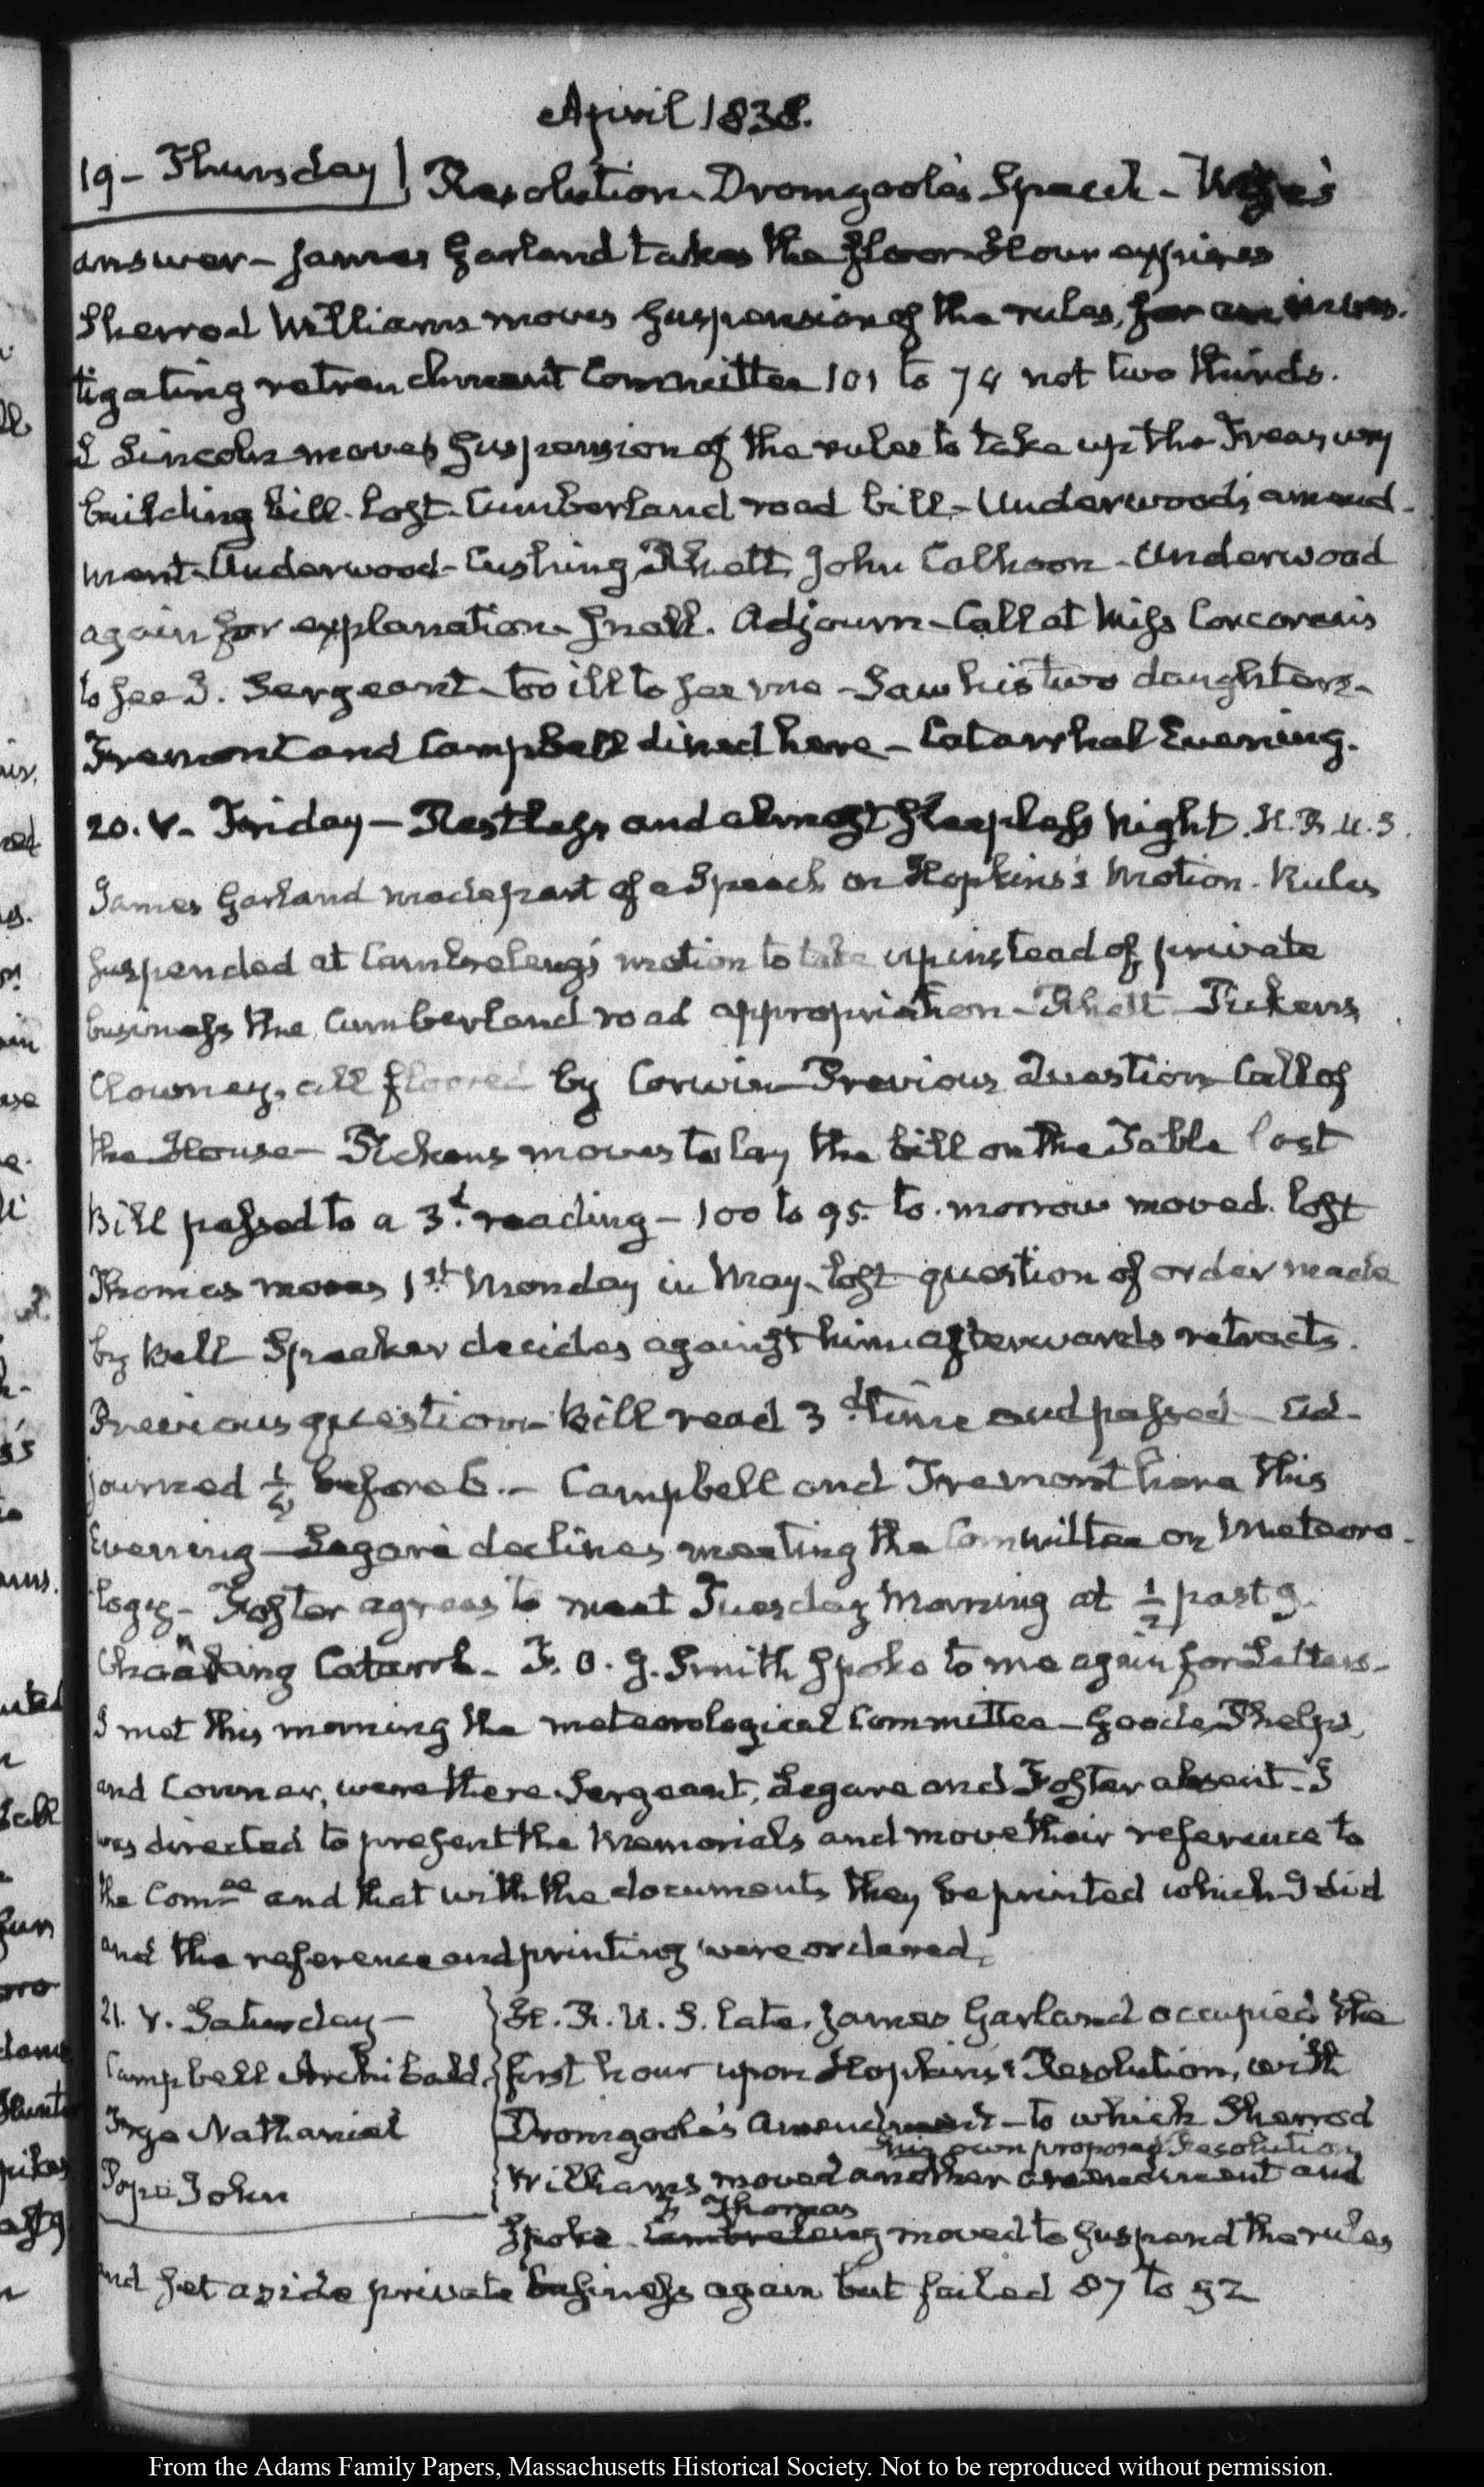 April 1838.
19 - Thursday | Resolution. Dromgoole's Speech - Wise's
answer - James Garland takes the floor. Hour expires
Sherrod Williams moves suspension of the rules, for an inves-
tigating retrenchment Committee 101 to 74 not two thirds.
Lincoln moves suspension of the rules to take up the Treasury
building bill. lost. Cumberland road bill - Underwood's amend-
ment. Underwood - Cushing, Rhett, John Calhoon - Underwood
again for explanation. Snoll. Adjourn - Call at Miss Corcoran's
to see J. Sergeant - too ill to see me - Saw his two daughters -
Fremont and Campbell dined here - Catarrhal Evening.
20. V. Friday - Restless and almost sleepless Night. H. R. U. S.
James Garland made part of a Speech on Hopkins's Motion. Rules
suspended at Cambreleng's motion to take up instead of private
business the Cumberland road appropriation - Rhett - Pickens,
Clowney, all floored by Corwin - Previous Question - Call of
the House - Pickens moves to lay the bill on the Table lost
Bill passed to a 3d. reading - 100 to 95. to-morrow moved. lost
Thomas moves 1st Monday in May - lost question of order made
by Bell Speaker decides against him afterwards retracts.
Previous question - Bill read 3d time and passed - Ad-
journed ½ before 6. - Campbell and Fremont here this
Evening - Legaré declines meeting the Committee on Meteoro-
logy - Foster agrees to meet Tuesday Morning at ½ past 9.
Catarrh - F. O. J. Smith spoke to me again for Letters -
I met this morning the meteorological Committee - Goode, Phelps,
and Connor, were there. Sergeant, Legare and Foster absent - I
was directed to present the Memorials and move their reference to
the Comee and that with the documents they be printed which I did
and the reference and printing were ordered.
21. V. Saturday - } H. R. U. S. late. James Garland occupied the
Campbell Archibald } first hour upon Hopkins's Resolution, with
Frye Nathaniel } Dromgoole's Amendment - to which Sherrod
his own proposed Resolution
Pope John } Williams moved another amendment and
F. Thomas
Spoke. Cambreleng moved to suspend the rules
and set aside private business again but failed 87 to 52
From the Adams Family Papers, Massachusetts Historical Society. Not to be reproduced without permission.